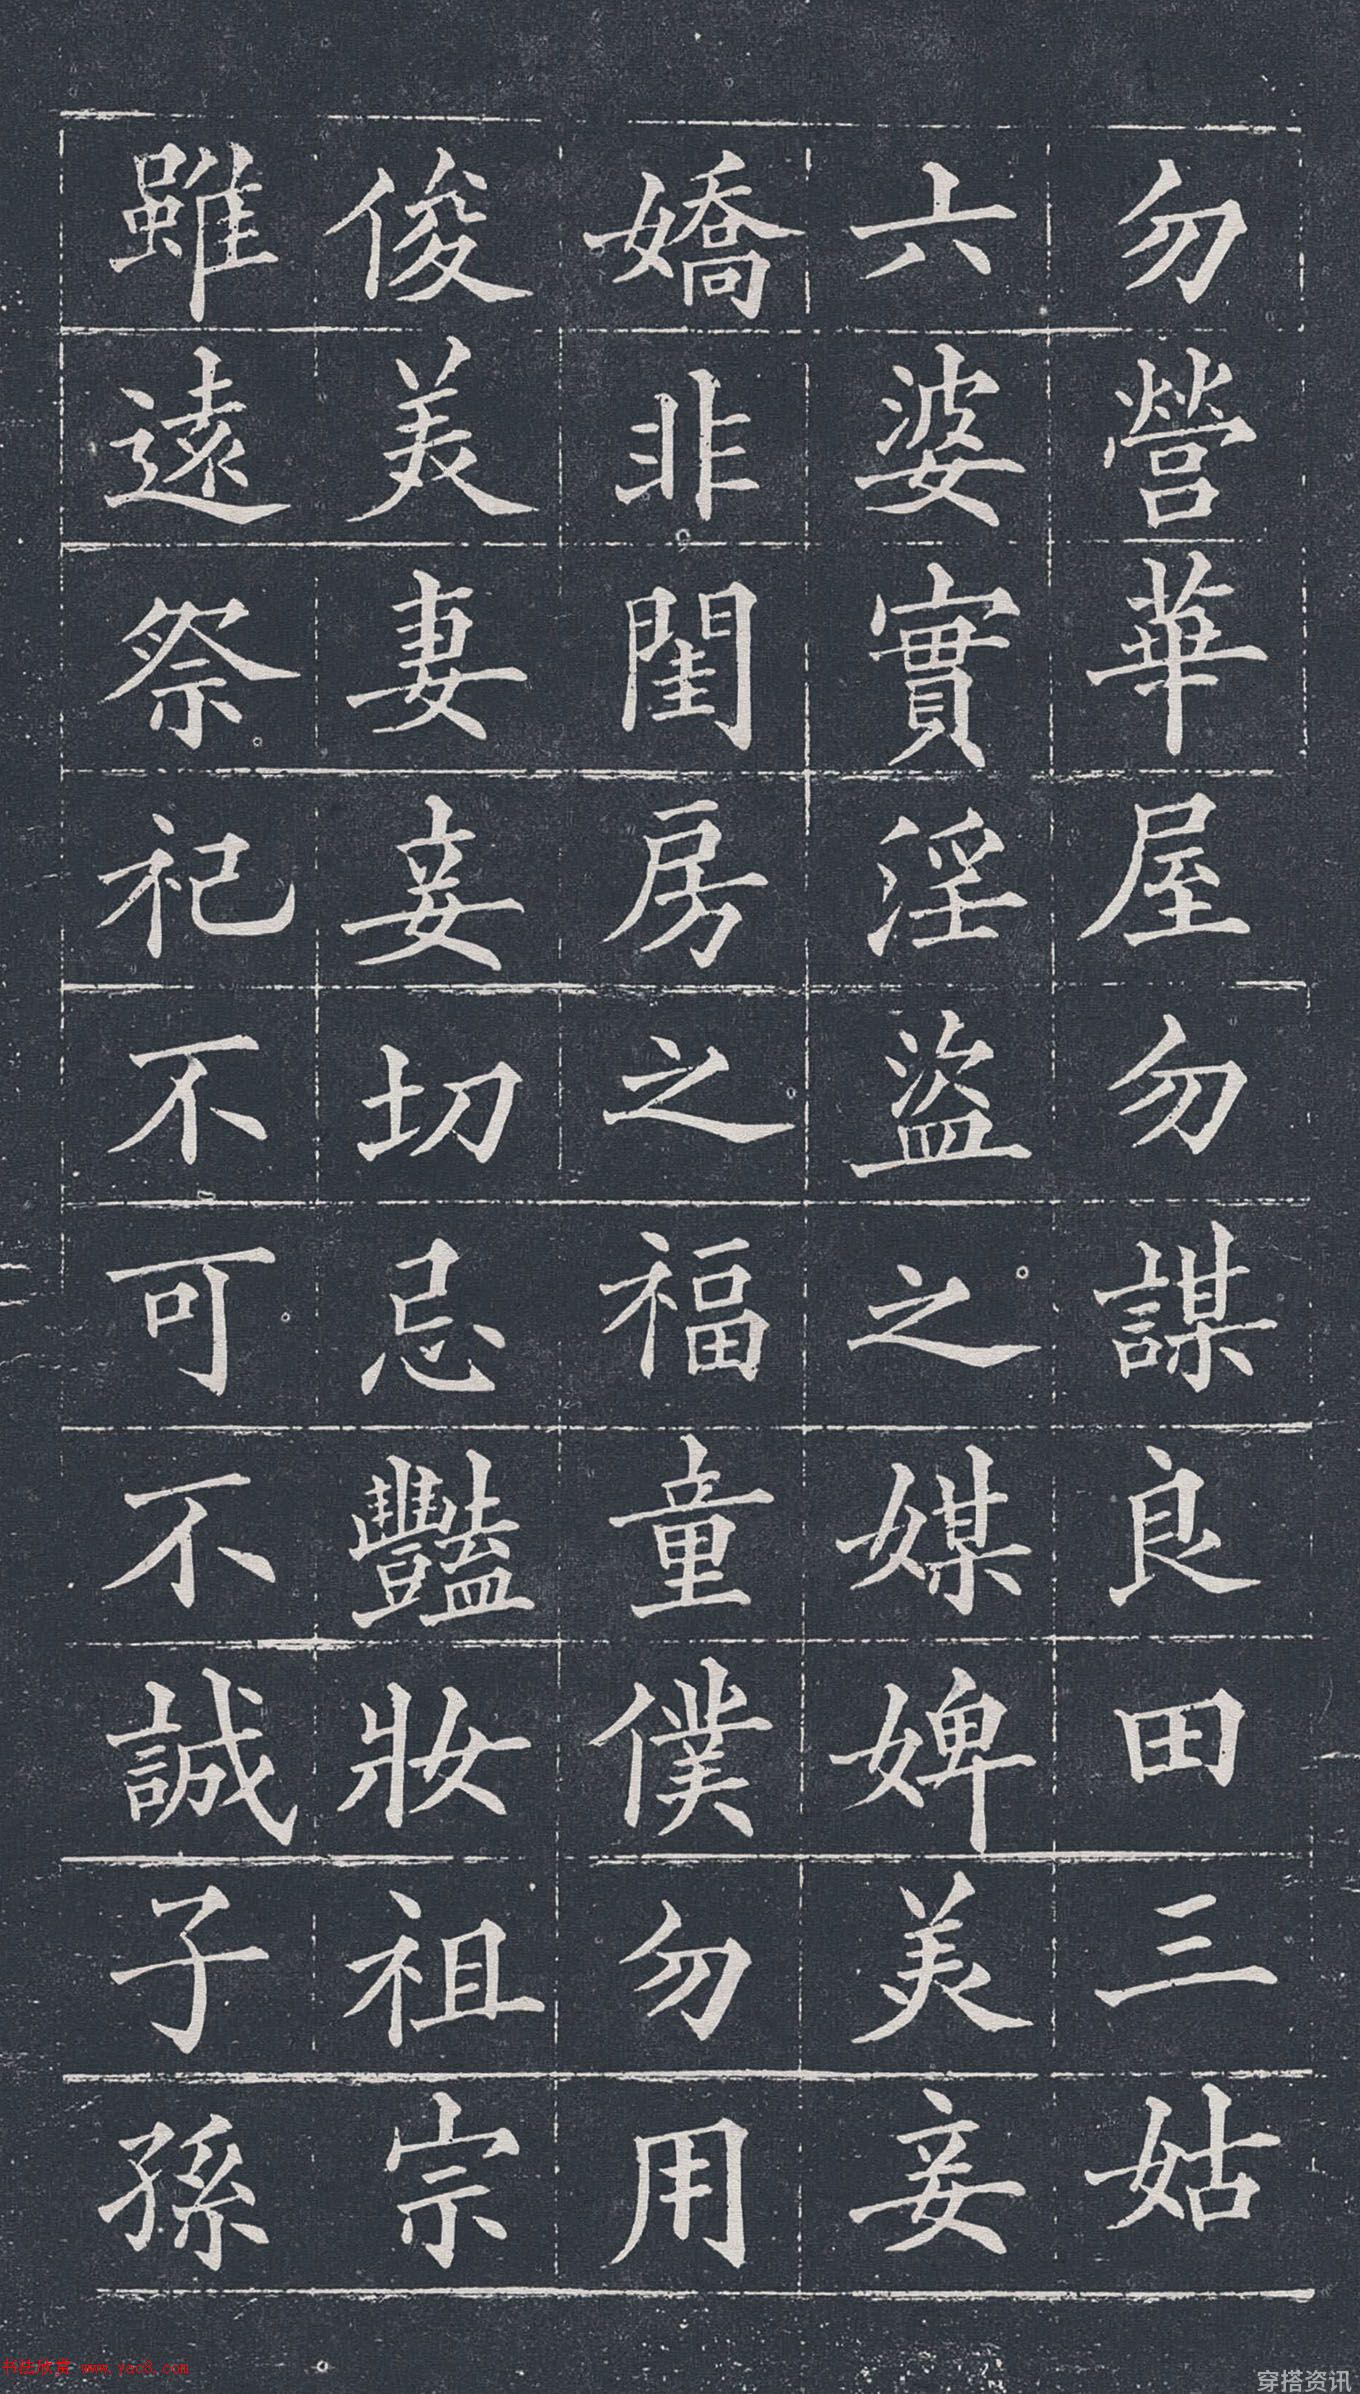 勿營華屋勿謀良田三姑
六婆實淫盜之媒婢美妾
嬌非閨房之福童僕勿用
俊美妻妾切忌豔妝祖宗
雖遠祭祀不可不誠子孫
书法欣赏 www.yac8.com
穿搭资讯